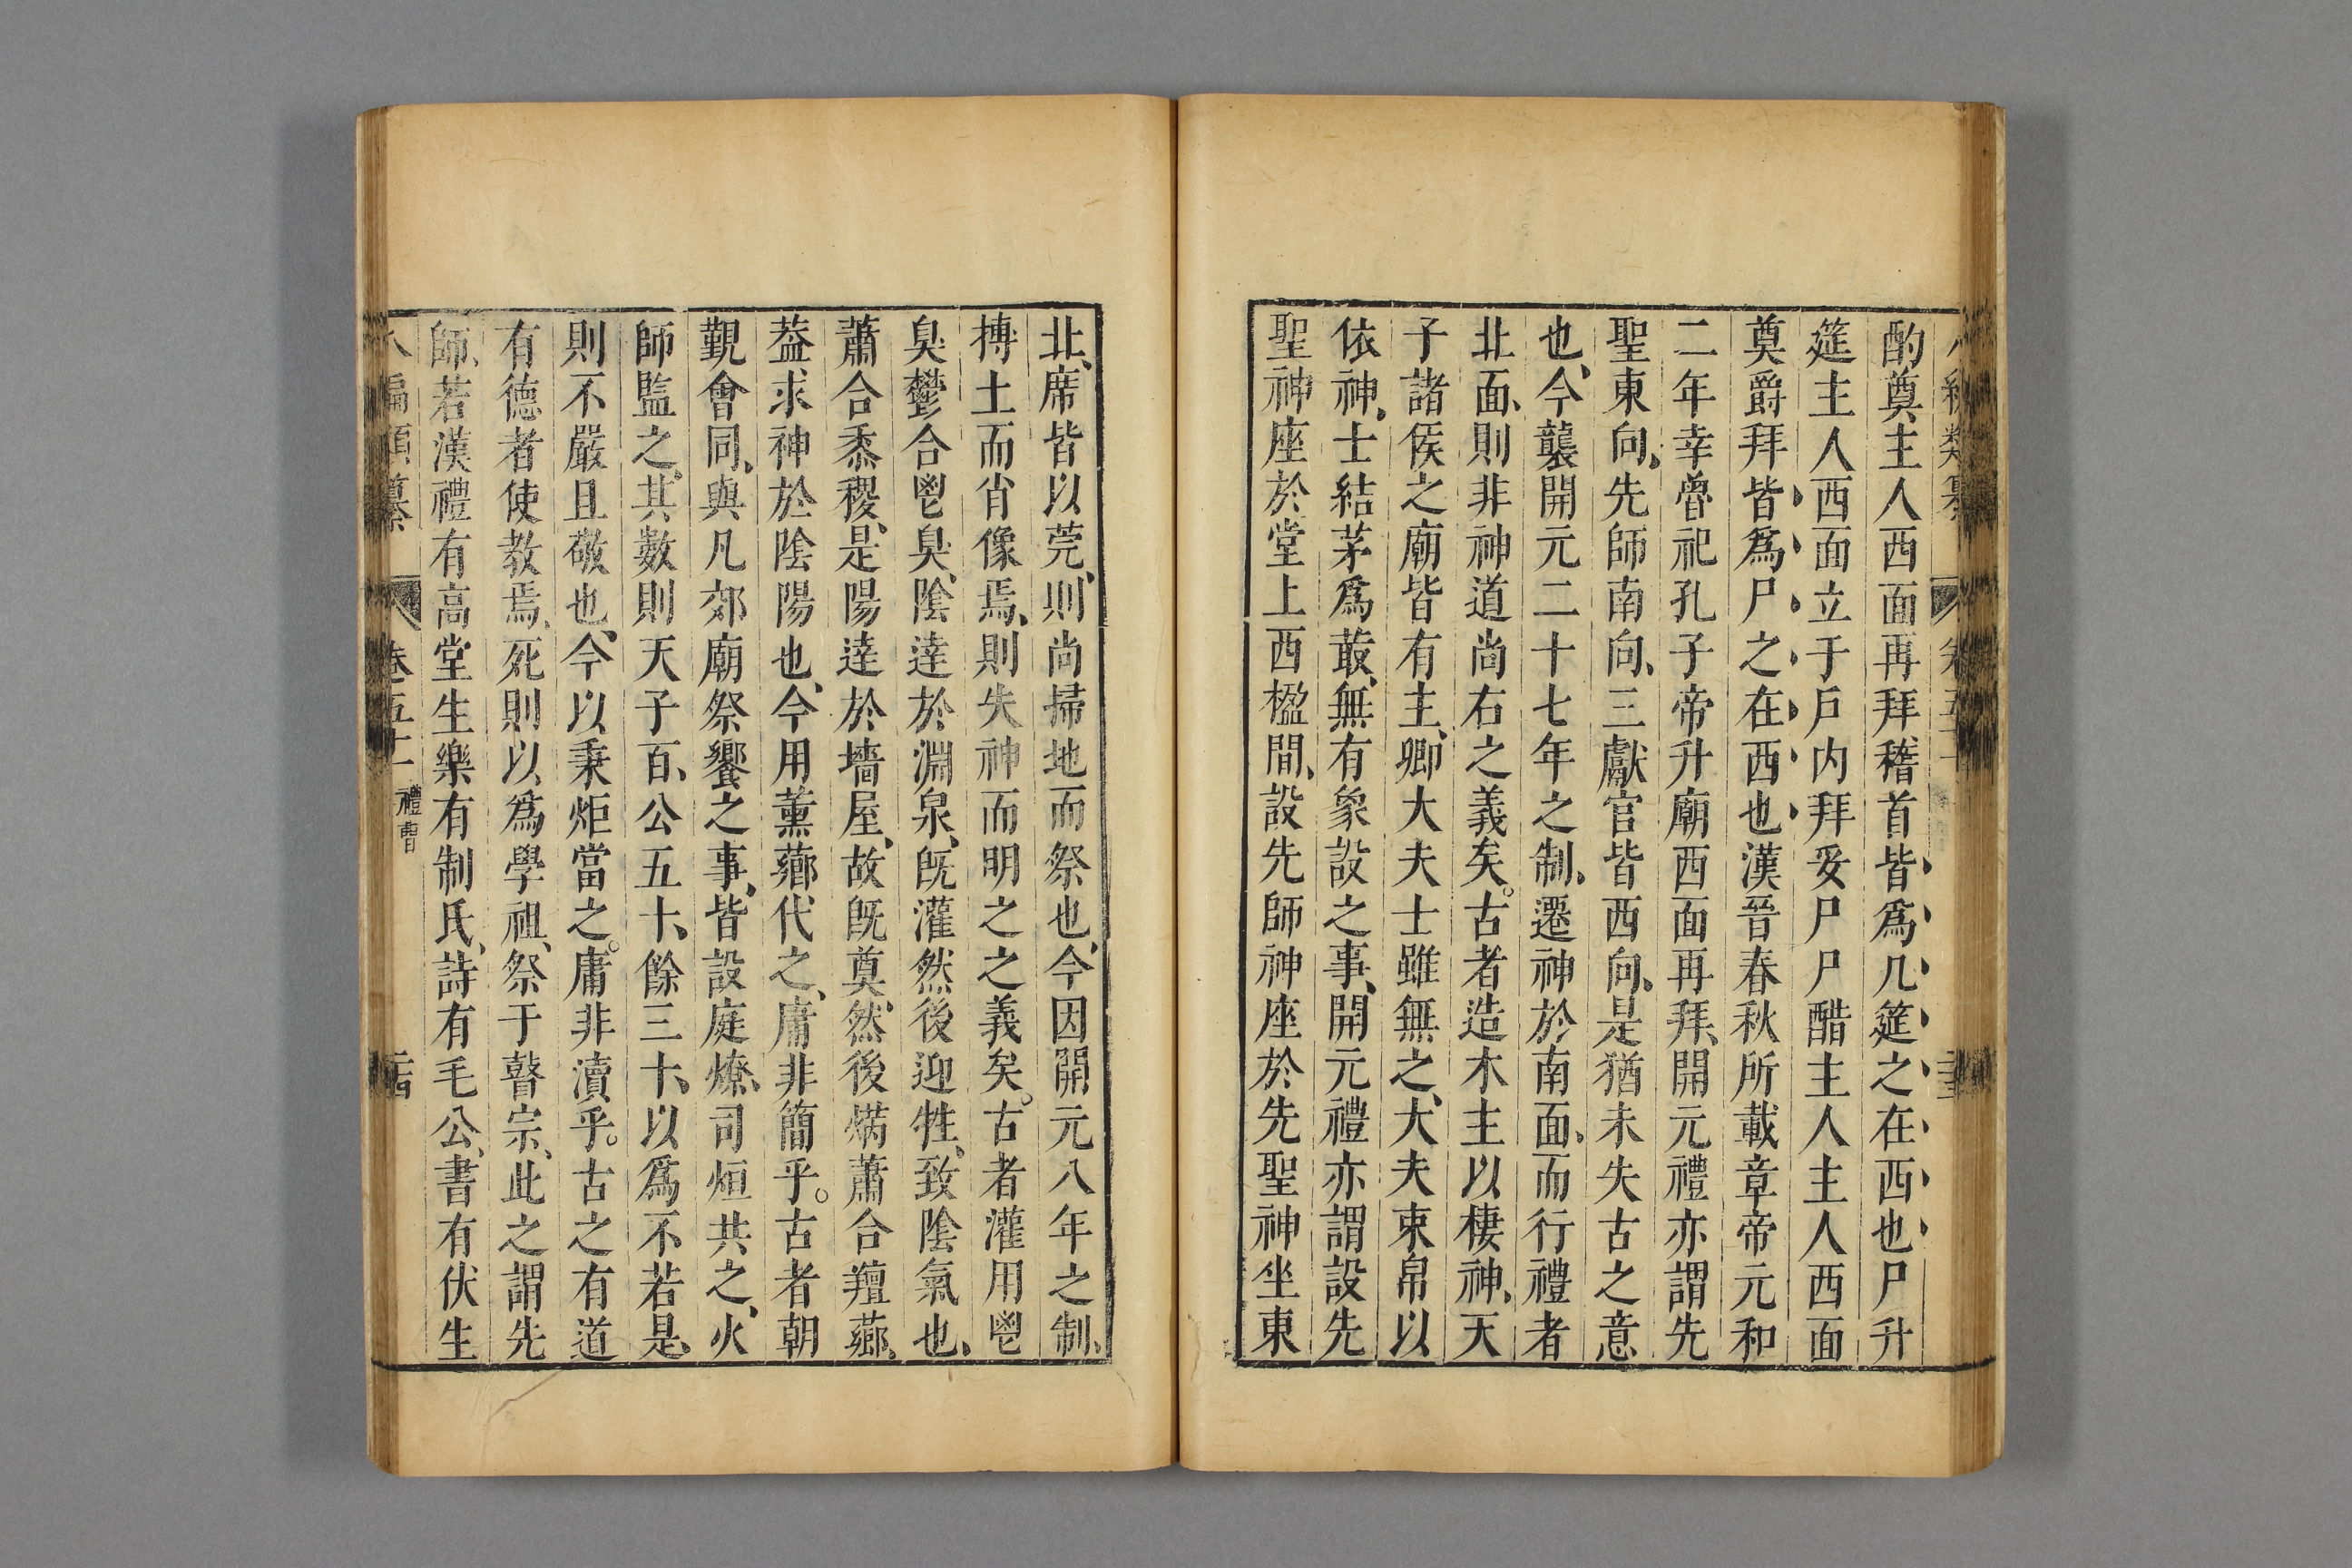 酌奠主人西面再拜稽首皆爲几筵之在西也尸升
筵主人西面立于戶内拜妥尸尸醋主人主人西面
奠爵拜皆爲尸之在西也漢晉春秋所載章帝元和
二年幸魯祀孔子帝升廟西面再拜、開元禮亦謂先
聖東向、先師南向、三獻官皆西向、是猶未失古之意
也、今襲開元二十七年之制、遷神於南面、而行禮者
北面、則非神道尚右之義矣。古者造木主以棲神、天
子諸侯之廟皆有主、卿大夫士雖無之、大夫束帛以
依神、士結茅爲菆、無有象設之事、開元禮亦謂設先
聖神座於堂上西楹間、設先師神座於先聖神坐東
北、席皆以莞、則尚掃地而祭也、今因開元八年之制、
摶土而肖像焉、則失神而明之之義矣。古者灌用鬯
臭鬱合鬯臭、陰達於淵泉、旣灌然後迎牲、致陰氣也、
蕭合黍稷、是陽達於墻屋、故旣奠、然後焫蕭合羶薌、
葢求神於陰陽也、今用薰薌代之、庸非簡乎。古者朝
覲會同、與凡郊廟祭饗之事、皆設庭燎、司烜共之、火
師監之、其數則天子百、公五十、餘三十、以爲不若是、
則不嚴且敬也、今以秉炬當之。庸非瀆乎。古之有道
有德者使教焉、死則以爲學祖、祭于瞽宗、此之謂先
師、若漢禮有高堂生樂有制氏、詩有毛公、書有伏生
編類纂 卷五十一 禮曹 二百